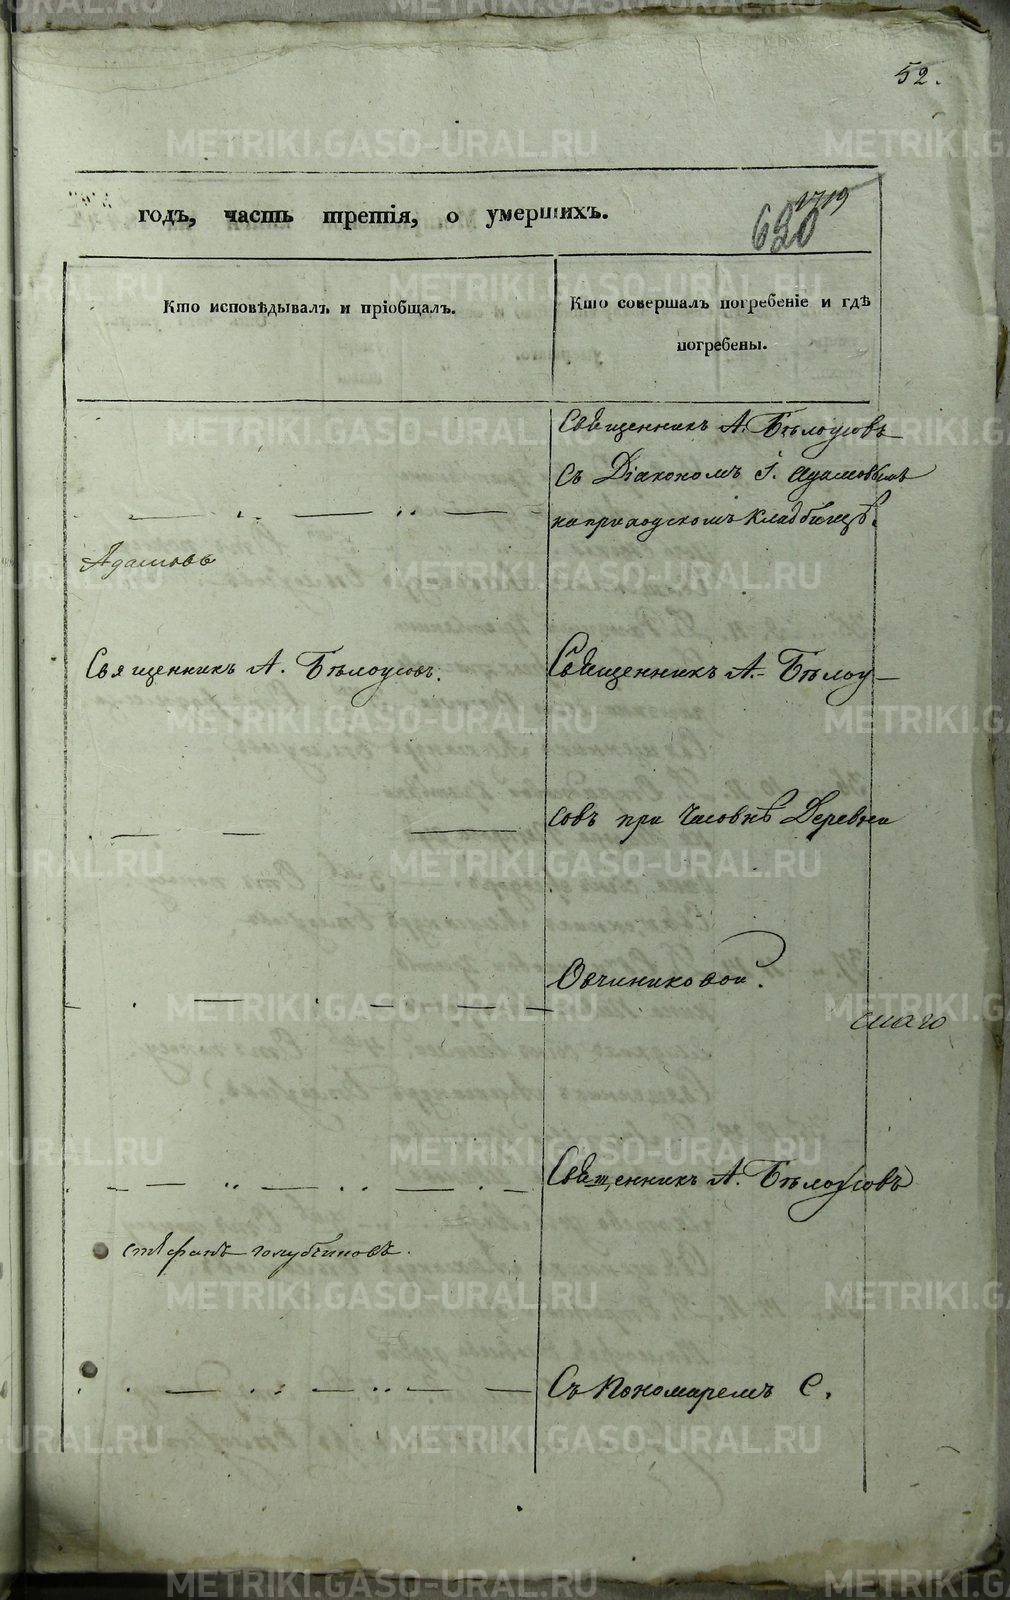 52.
годъ, часть третія, о умершихъ.
620
1719
Кто исповѣдывалъ и пріобщалъ.
Кто совершалъ погребеніе и гдѣ
погребены.
Священникъ А. Бѣлоусовъ
Съ Діакономъ І. Адамовымъ
на приходскомъ кладбищѣ.
Адамовъ
Священникъ А. Бѣлоусовъ.
Священникъ А. Бѣлоу-
совъ при Часовнѣ Деревни
Овчиниковой.
Священникъ А. Бѣлоусовъ
Стефанъ голубчиковъ.
Съ Пономаремъ С.
METRIKI.GASO-URAL.RU